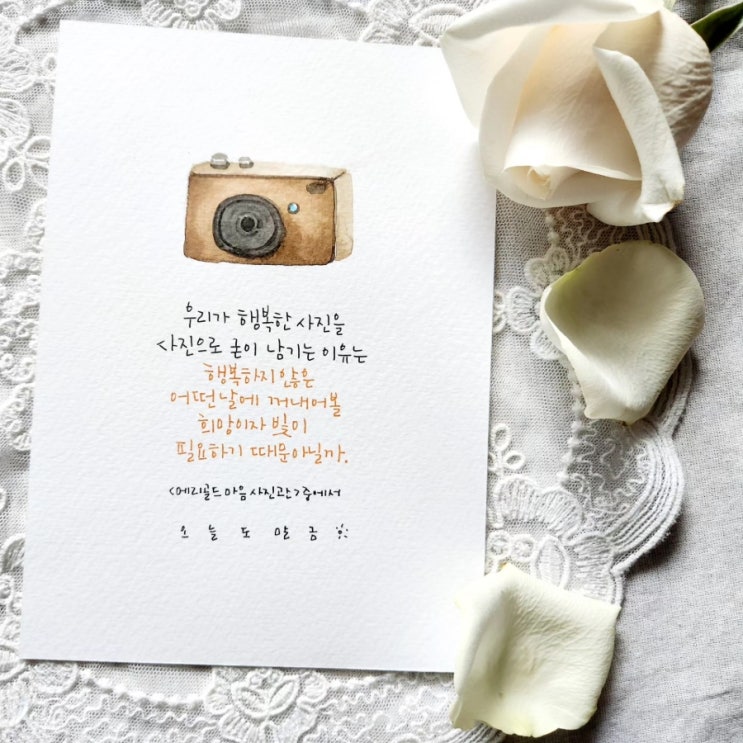 우리가 행복한 사진을
사진으로 굳이 남기는 이유는
행복하지 않은
어떤날에 꺼내어볼
희망이자 빛이
필요하기 때문아닐까.
<메리골드 마음 사진관>중에서
오늘도 맑금